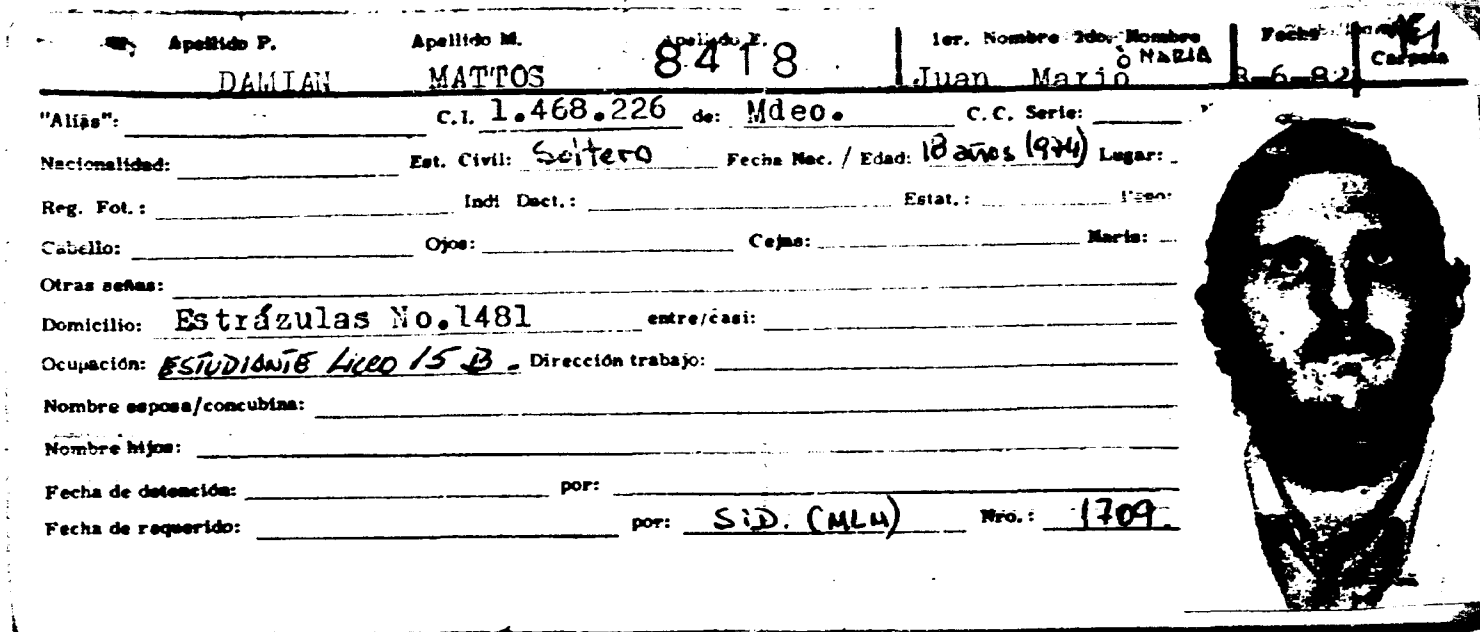 Apellido P. Apellido M. Apellido E. 1er. Nombre 2do. Nombre Fecha
8418 ò MARIA Carpeta
DAMIAN MATTOS Juan Mario 8-6-82
"Alias": C.I. 1.468.226 de: Mdeo. C.C. Serie:
Nacionalidad: Est. Civil: Soltero Fecha Nac. / Edad: 18 años (974) Lugar:
Reg. Fot.: Indi Dact.: Estat.:
Cabello: Ojos: Cejas: Nariz:
Otras señas:
Domicilio: Estrázulas No.1481 entre/casi:
Ocupación: ESTUDIANTE Liceo 15 B. Dirección trabajo:
Nombre esposa/concubina:
Nombre hijos:
Fecha de detención: por:
Fecha de requerido: por: SiD. (MLN) Nro.: 1709.